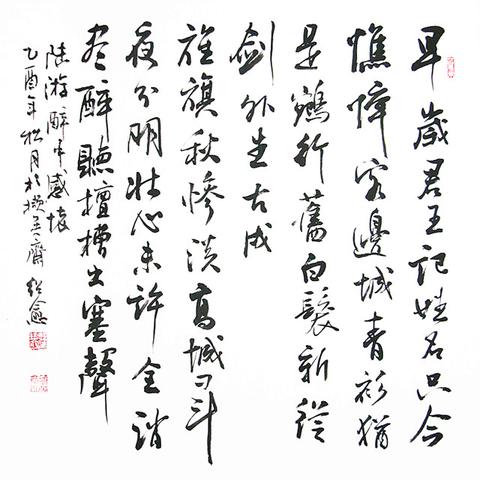 早歲君王记姓名只今
憔悴客邊城青衫猶
是鵷行舊白髮新從
剑外生古戍
旌旗秋惨淡高城刁斗
夜分明壮心未許全消
尽醉聽檀槽出塞聲
陆游醉中感怀
乙酉年松月於